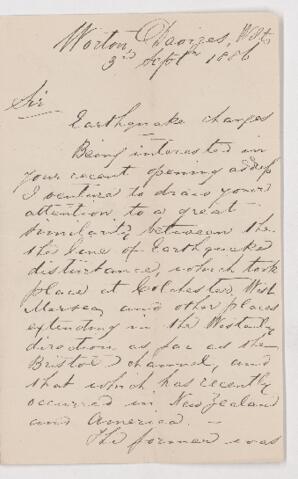 Worton, Devizes, Wilts,
3rd Septr 1886
Sir
Earthquake changes
Being interested in
your recent opening address
I venture to draw your
attention to a great
similarity between the
the line of Earthquake
disturbance, which took
place at Colchester, West
Mersea, and other places
extending in the Westerly
direction as far as the
Bristol Channel, and
that which has recently
occurred in New Zealand
and America. —
The former was